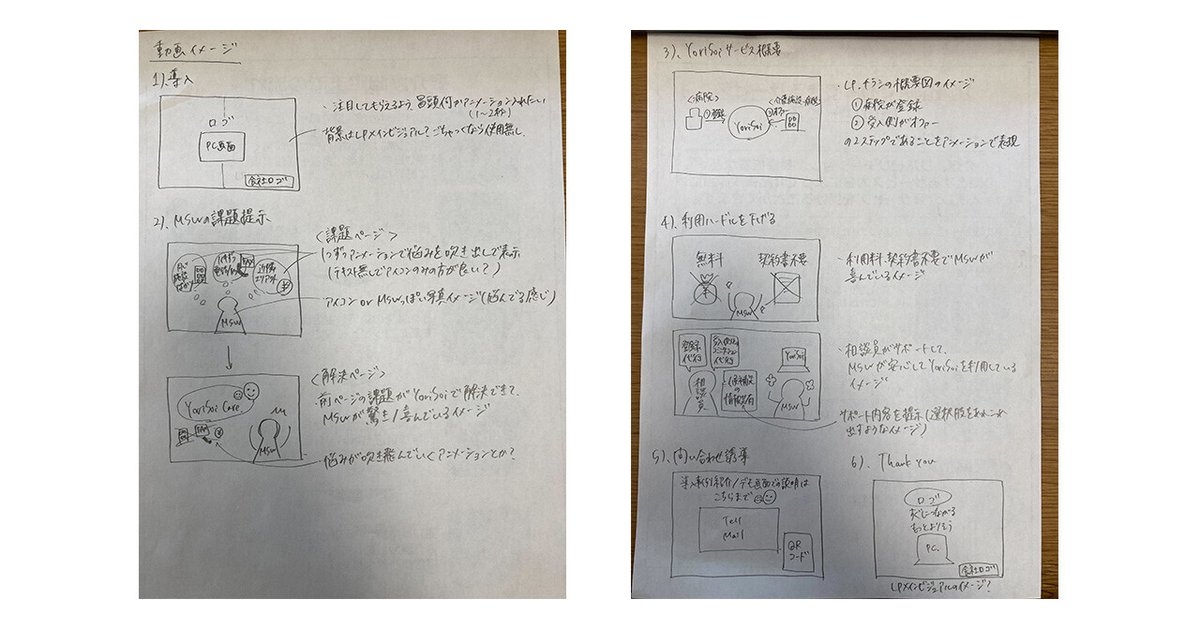 動画イメージ
1)、導入
ロゴ
PC画面
会社ロゴ
・注目してもらえるよう、冒頭何かアニメーション入れたい
(1〜2秒)
背景はLPメインビジュアル?ごちゃつくなら使用無し。
2)、MSWの課題提示
MSW
<課題ページ>
1つずつアニメーションで悩みを吹き出しで表示
(テキスト無しでアイコンのみの方が良い?)
アイコン or MSWっぽい写真イメージ(悩んでる感じ)
YoriSoi Care
MSW
<解決ページ>
前ページの課題がYoriSoiで解決できて、
MSWが驚き/喜んでいるイメージ
悩みが吹き飛んでいくアニメーションとか?
3)、YoriSoiサービス概要
<病院>
①登録
YoriSoi
<介護施設・病院>
②オファー
・LP、チラシの概要図のイメージ
①病院が登録
②受入側がオファー
の2ステップであることをアニメーションで表現
4)、利用ハードルを下げる
無料
契約書不要
¥
MSW
・利用料、契約書不要でMSWが
喜んでいるイメージ
登録
代行
代行
相談員
候補施設の
情報共有
YoriSoi
MSW
・相談員がサポートして、
MSWが安心してYoriSoiを利用している
イメージ
サポート内容を提示(選択肢をあれこれ
出すようなイメージ)
5)、問い合わせ誘導
導入事例紹介/デモ画面での説明は
こちらまで
Tell
Mail
QR
コード
6)、Thank you
ロゴ
すぐにつながる
もっとよりそう
PC
会社ロゴ
LPメインビジュアルのイメージ?